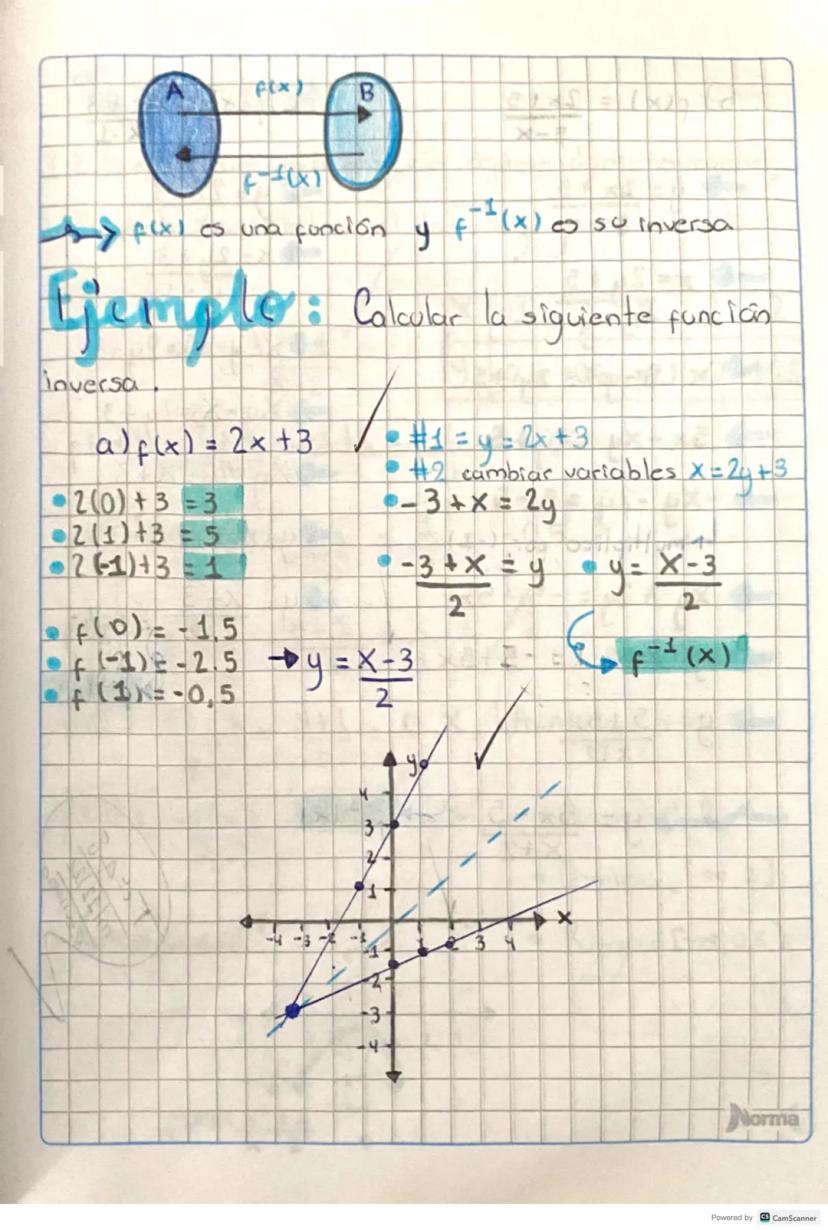 A f(x) B
f⁻¹(x)
f(x) es una función y f⁻¹(x) es su inversa
Ejemplo: Calcular la siguiente función
inversa.
a) f(x) = 2x+3
• #1 = y = 2x+3
• #2 cambiar variables x=2y+3
• 2(0)+3 = 3
• -3+x = 2y
• 2(1)+3 = 5
• 2(-1)+3 = 1
• -3+x/2 = y • y = x-3/2
• f(0) = -1,5
• f(-1) = -2.5 → y = x-3/2
f⁻¹(x)
• f(1) = -0,5
y
4
3
2
1
-4 -3 -2 -1 1 2 3 4 x
-1
-2
-3
-4
Norma
Powered by CS CamScanner